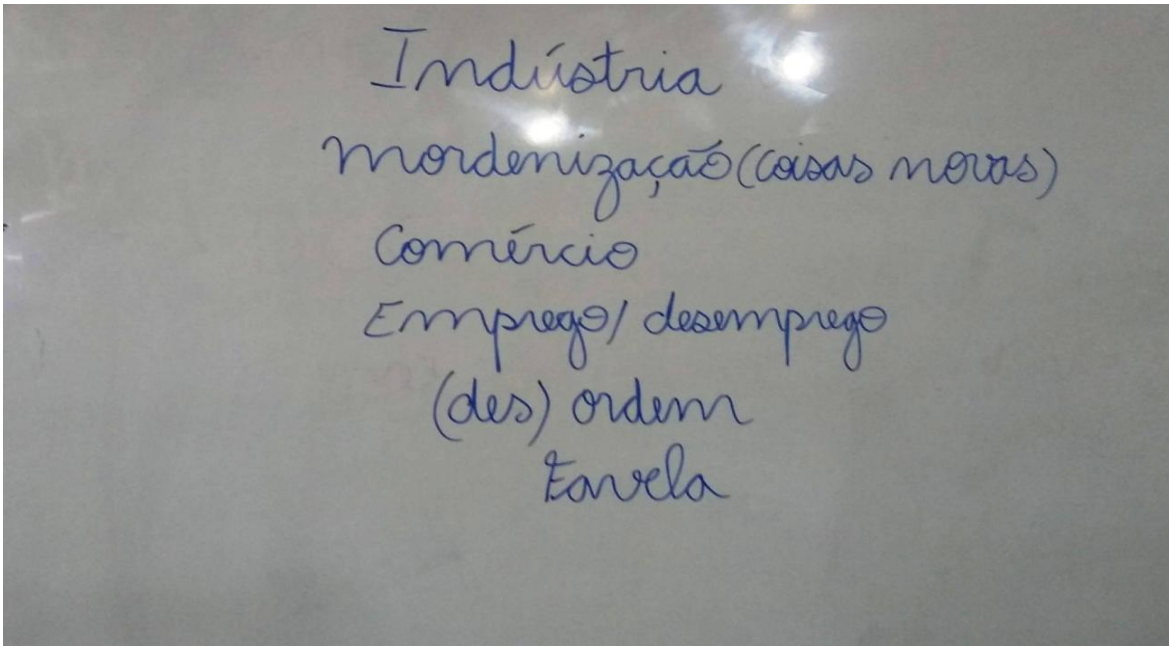 Indústria
Mordenização (Coisas novas)
Comércio
Emprego/ desemprego
(des) ordem
Favela